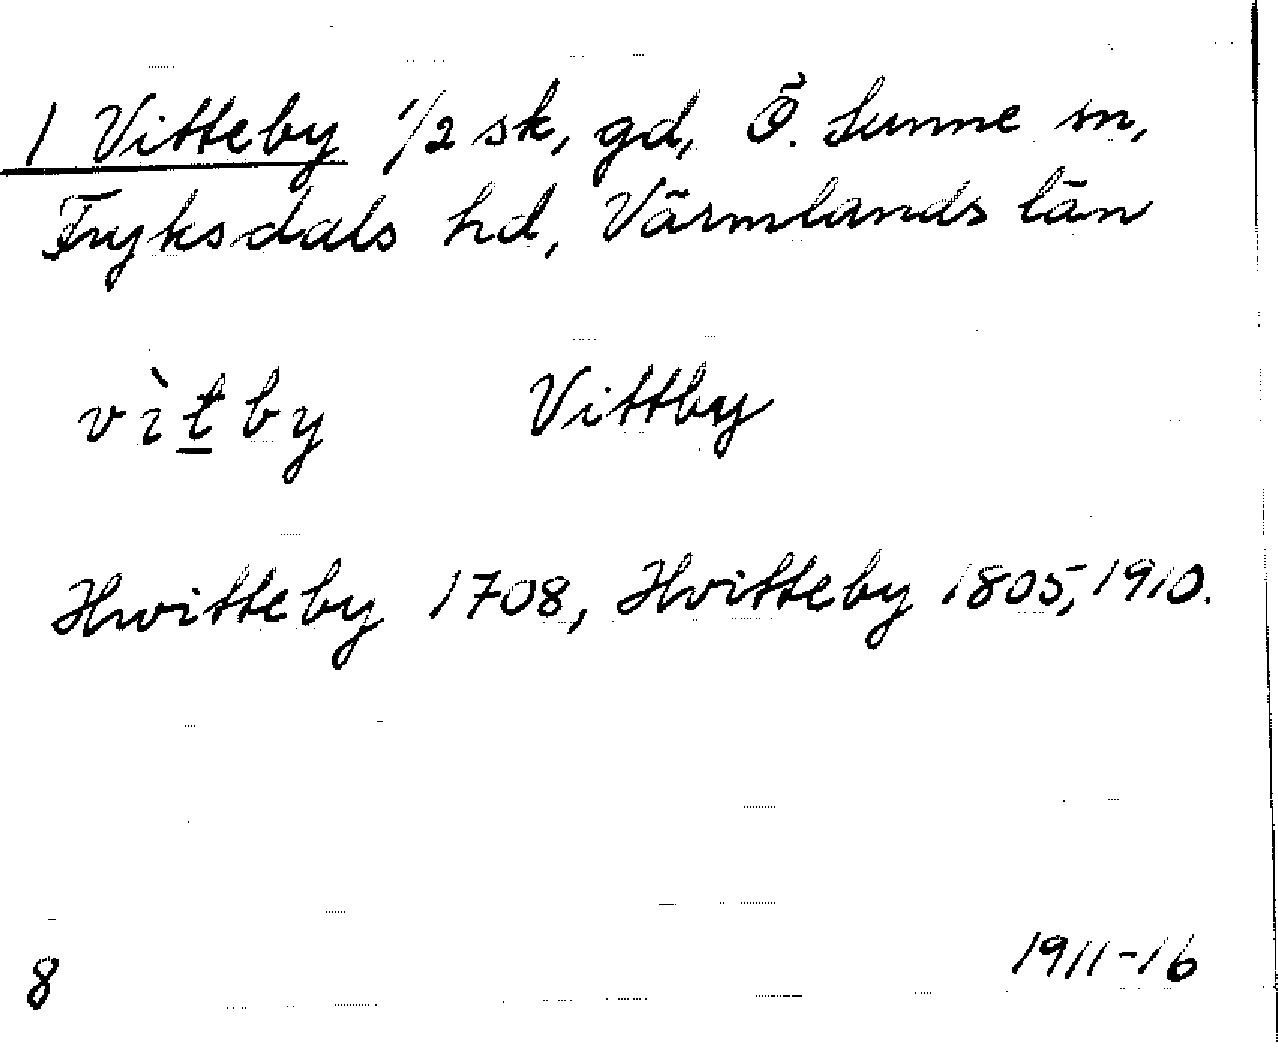 1 Vitteby 1/2 sk, gd, Ö. Sunne sn,
Fryksdals hd, Värmlands län
vìt̲by Vittby
Hwitteby 1708, Hvitteby 1805, 1910.
8 1911-16